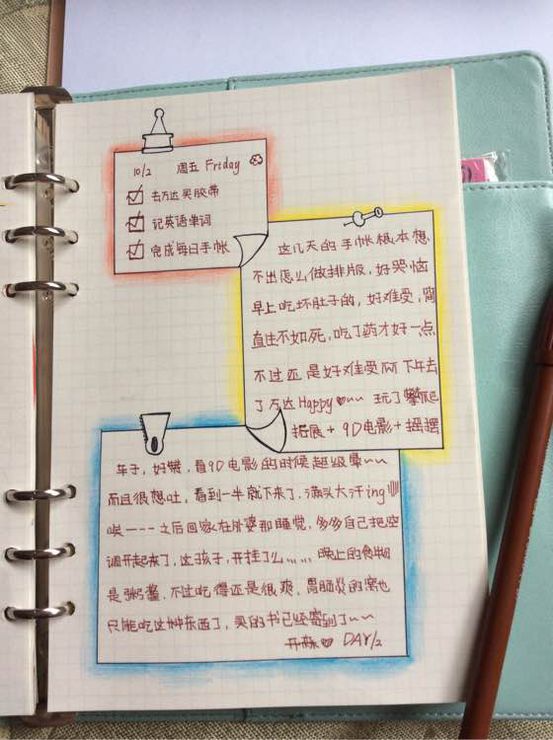 10/2 週五 Friday
去万达买胶带
记英语单词
完成每日手帐
这几天的手帐根本想
不出怎么做排版，好哭恼
早上吃坏肚子的，好难受，简
直生不如死，吃了药才好一点
不过还是好难受 下午去
了万达Happy♥~~ 玩了攀爬
拓展+9D电影+摇摆
车子，好赞，看9D电影的时候超级晕~~
而且很想吐，看到一半就下来了，满头大汗ing
唉----之后回家在外婆那睡觉，多多自己把空
调开起来了，这孩子，开挂了么...... 晚上的食物
是粥酱，不过吃得还是很爽，胃肠炎的窝也
只能吃这种东西了，买的书已经寄到了~~
♥ DAY/2